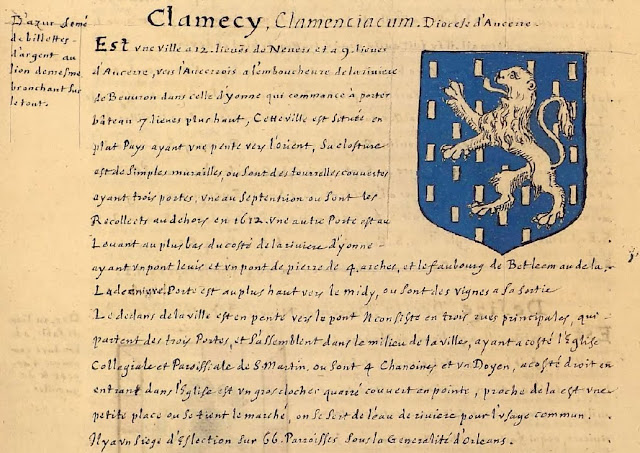 Clamecy, Clamenciacum. Diocese d'Aucerre.
D'azur semé
de billettes
d'argent au
lion de mesme
bronchant sur
le tout.
Est vne ville a 12. lieuës de Neuers et a 9. lieues
d'Aucerre, vers l'Aucerrois a l'emboucheure de la riuiere
de Beuuron dans celle d'yonne qui commance a porter
bâteau 7. lieues plus haut, Cette ville est située en
plat Pays ayant vne pente vers l'Orient, Sa closture
est de simples murailles, ou sont des tourrelles couuertes
ayant trois portes, vne au Septentrion ou sont les
Recollects au dehors en 1612. vne autre Porte est au
Leuant au plus bas du costé de la riuiere d'yonne
ayant vn pont leuis et vn pont de pierre de 4. arches, et le faubourg de Betleem au dela.
La derniere Porte est au plus haut vers le midy, ou sont des vignes a sa sortie
Le dedans de la ville est en pente vers le pont Il consiste en trois rues principales, qui
partent des trois Portes, et s'assemblent dans le milieu de la ville, ayant a costé l'Eglise
Collegiale et Paroissiale de S. Martin. ou sont 4 Chanoines et vn Doyen, a costé droit en
entrant dans l'Eglise est vn gros clocher quarré couuert en pointe, proche de la est vne
petite place ou se tient le marché, on se sert de l'eau de riuiere pour l'vsage commun.
Il y a vn siege d'Eslection sur 66. Parroisses sous la Generalité d'Orleans.